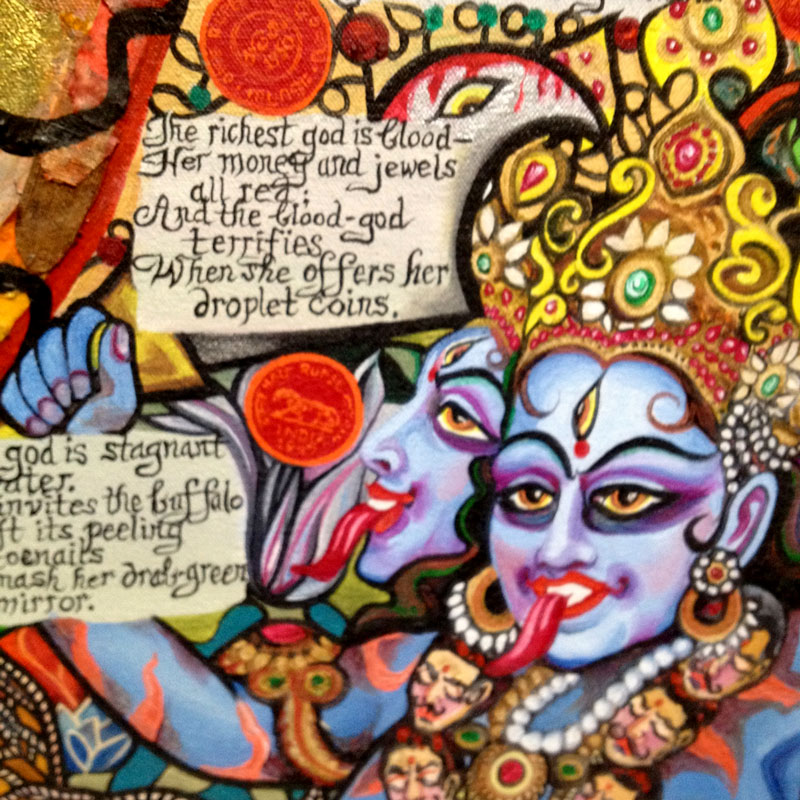 The richest god is blood—
Her money and jewels
all red;
And the blood-god
terrifies
When she offers her
droplet coins.
god is stagnant
ater.
invites the buffalo
ft its peeling
oenails
mash her drab-green
mirror.